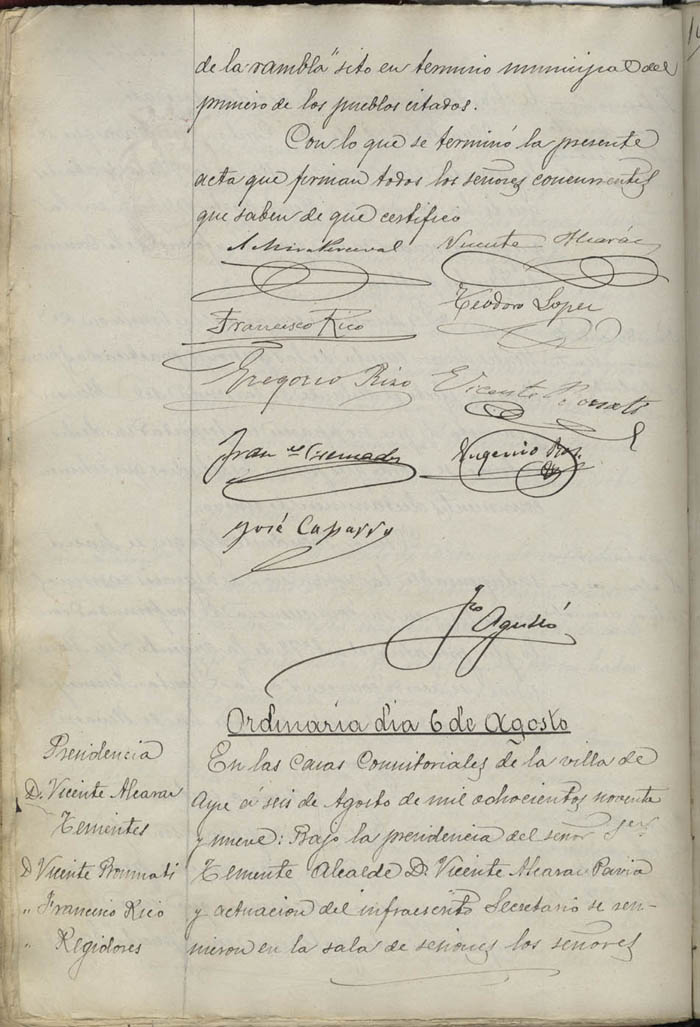 de la rambla" sito en termino municipal del
primero de los pueblos citados.
Con lo que se terminó la presente
acta que firman todos los señores concurrentes
que saben de que certifico
A Mira Perceval
Vicente Alcaráz
Francisco Rico
Teodoro Lopez
Gregorio Rizo
Vicente
Fran.co Cremades
Eugenio
José Caparrs
Fco Agulló
Ordinaria dia 6 de Agosto
Presidencia
D. Vicente Alcaraz
Tenientes
D Vicente Bonmati
" Francisco Rico
" Regidores
En las casas Consistoriales de la villa de
Aspe á seis de Agosto de mil ochocientos noventa
y nueve: Bajo la presidencia del señor
Teniente Alcalde D. Vicente Alcaraz Pavia
y actuacion del infraescrito Secretario se reu-
nieron en la sala de sesiones los señores